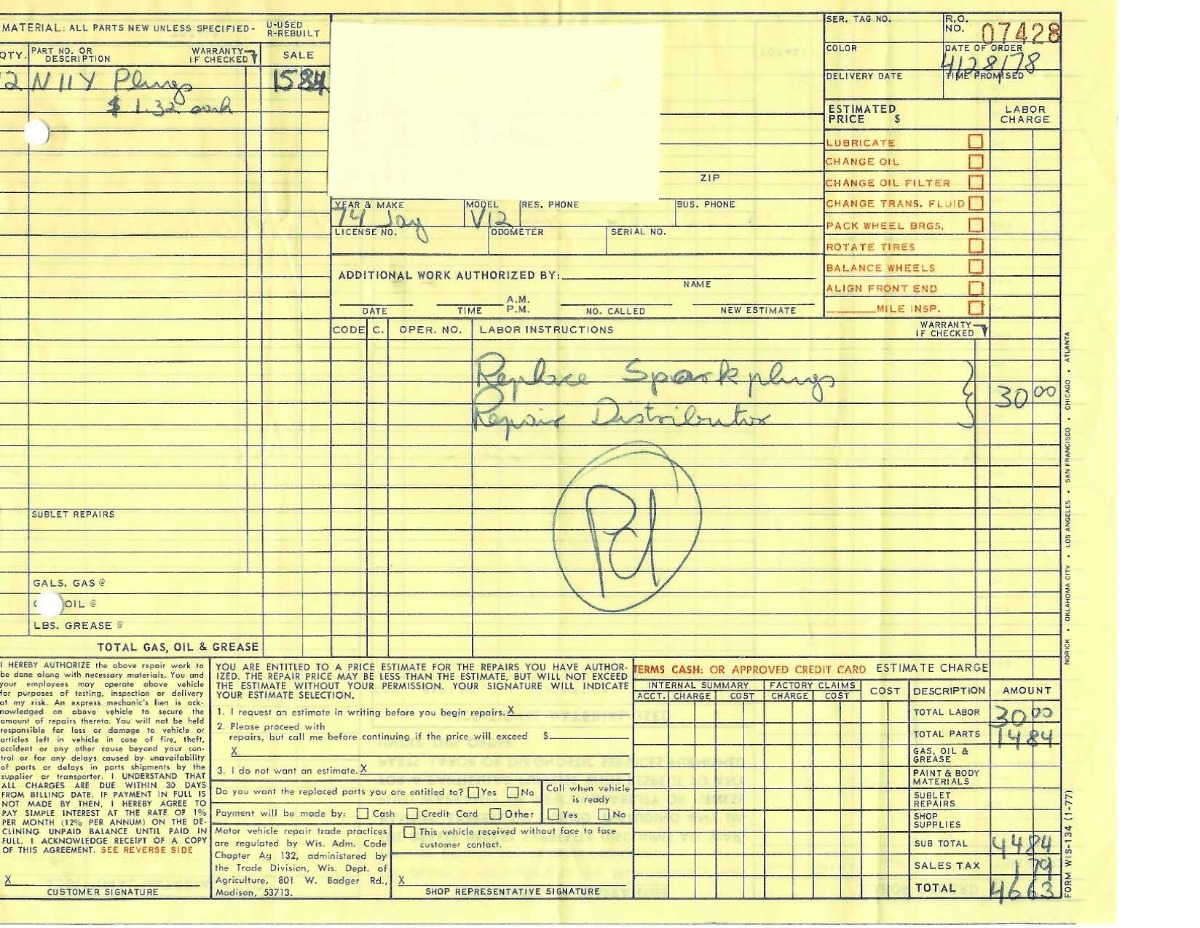 MATERIAL: ALL PARTS NEW UNLESS SPECIFIED- U-USED R-REBUILT
QTY. PART NO. OR DESCRIPTION WARRANTY IF CHECKED SALE
12 N11Y Plugs 1584
$ 1.32 each
SER. TAG NO. R.O. NO. 07428
COLOR DATE OF ORDER
4/28/78
DELIVERY DATE TIME PROMISED
ESTIMATED PRICE $ LABOR CHARGE
LUBRICATE
CHANGE OIL
CHANGE OIL FILTER
CHANGE TRANS. FLUID
PACK WHEEL BRGS.
ROTATE TIRES
BALANCE WHEELS
ALIGN FRONT END
MILE INSP.
ZIP
YEAR & MAKE MODEL RES. PHONE BUS. PHONE
74 Jag V12
LICENSE NO. ODOMETER SERIAL NO.
ADDITIONAL WORK AUTHORIZED BY:
NAME
DATE TIME A.M. P.M. NO. CALLED NEW ESTIMATE
CODE C. OPER. NO. LABOR INSTRUCTIONS WARRANTY IF CHECKED
Replace Spark plugs
Repair Distributor
3000
Pd
SUBLET REPAIRS
GALS. GAS @
OIL @
LBS. GREASE @
TOTAL GAS, OIL & GREASE
I HEREBY AUTHORIZE the above repair work to
be done along with necessary materials. You and
your employees may operate above vehicle
for purposes of testing, inspection or delivery
at my risk. An express mechanic's lien is ack-
nowledged on above vehicle to secure the
amount of repairs thereto. You will not be held
responsible for loss or damage to vehicle or
articles left in vehicle in case of fire, theft,
accident or any other cause beyond your con-
trol or for any delays caused by unavailability
of parts or delays in parts shipments by the
supplier or transporter. I UNDERSTAND THAT
ALL CHARGES ARE DUE WITHIN 30 DAYS
FROM BILLING DATE. IF PAYMENT IN FULL IS
NOT MADE BY THEN, I HEREBY AGREE TO
PAY SIMPLE INTEREST AT THE RATE OF 1%
PER MONTH (12% PER ANNUM) ON THE DE-
CLINING UNPAID BALANCE UNTIL PAID IN
FULL. I ACKNOWLEDGE RECEIPT OF A COPY
OF THIS AGREEMENT. SEE REVERSE SIDE
X
CUSTOMER SIGNATURE
YOU ARE ENTITLED TO A PRICE ESTIMATE FOR THE REPAIRS YOU HAVE AUTHOR-
IZED. THE REPAIR PRICE MAY BE LESS THAN THE ESTIMATE, BUT WILL NOT EXCEED
THE ESTIMATE WITHOUT YOUR PERMISSION. YOUR SIGNATURE WILL INDICATE
YOUR ESTIMATE SELECTION.
1. I request an estimate in writing before you begin repairs. X
2. Please proceed with
repairs, but call me before continuing if the price will exceed $
X
3. I do not want an estimate. X
Do you want the replaced parts you are entitled to? Yes No
Call when vehicle is ready
Payment will be made by: Cash Credit Card Other Yes No
Motor vehicle repair trade practices
are regulated by Wis. Adm. Code
Chapter Ag 132, administered by
the Trade Division, Wis. Dept. of
Agriculture, 801 W. Badger Rd.,
Madison, 53713.
This vehicle received without face to face
customer contact.
X
SHOP REPRESENTATIVE SIGNATURE
TERMS CASH: OR APPROVED CREDIT CARD ESTIMATE CHARGE
INTERNAL SUMMARY FACTORY CLAIMS COST DESCRIPTION AMOUNT
ACCT. CHARGE COST CHARGE COST
TOTAL LABOR 3000
TOTAL PARTS 1484
GAS, OIL & GREASE
PAINT & BODY MATERIALS
SUBLET REPAIRS
SHOP SUPPLIES
SUB TOTAL 4484
SALES TAX 179
TOTAL 4663
NORICK • OKLAHOMA CITY • LOS ANGELES • SAN FRANCISCO • CHICAGO • ATLANTA
FORM WIS-134 (1-77)